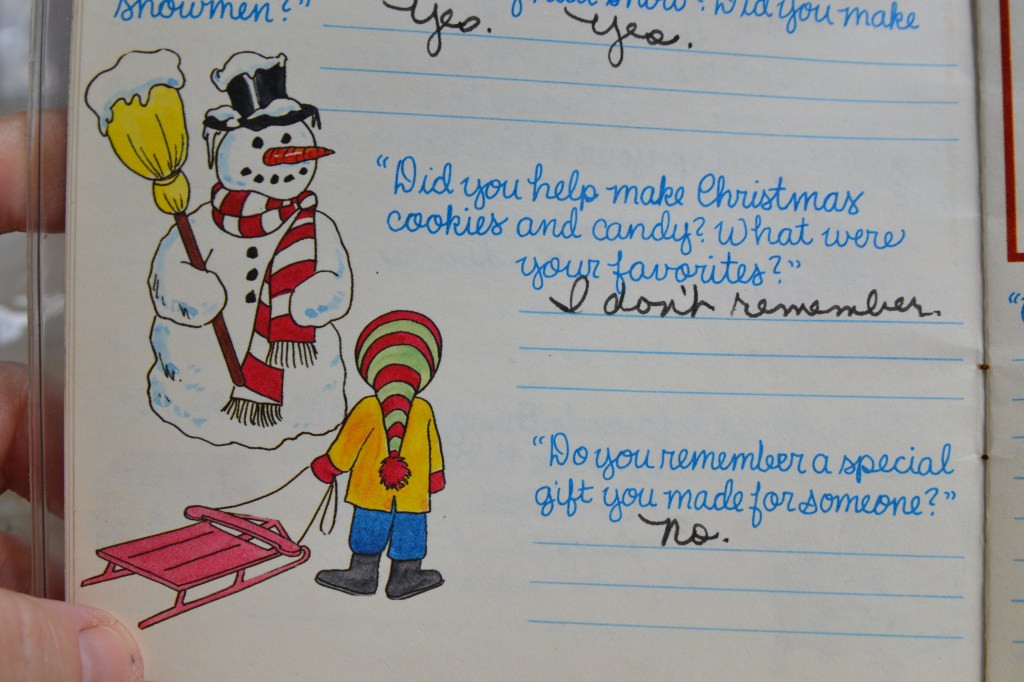 snowmen?" snow? Did you make
Yes. Yes.
"Did you help make Christmas
cookies and candy? What were
your favorites?"
I don't remember.
"Do you remember a special
gift you made for someone?"
No.